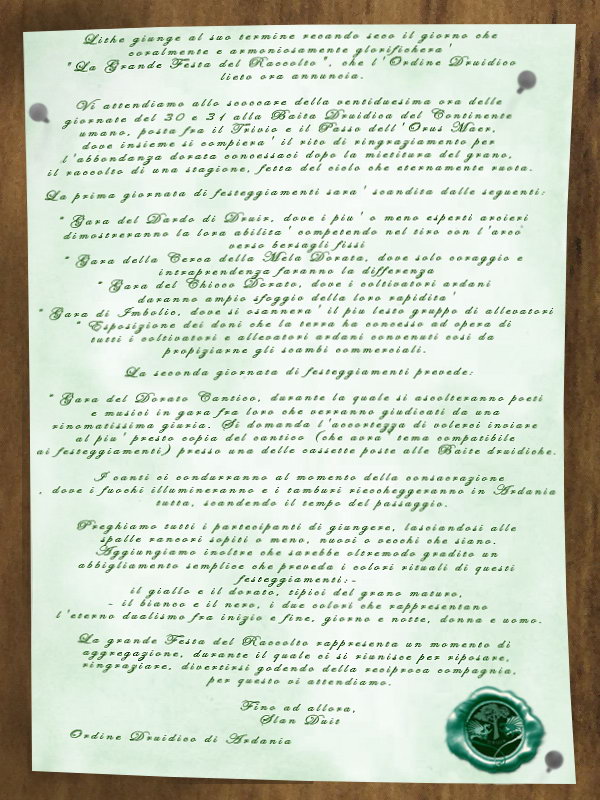 Lithe giunge al suo termine recando seco il giorno che
coralmente e armoniosamente glorifichera'
"La Grande Festa del Raccolto", che l'Ordine Druidico
lieto ora annuncia.
Vi attendiamo allo scoccare della ventiduesima ora delle
giornate del 30 e 31 alla Baita Druidica del Continente
umano, posta fra il Trivio e il Passo dell'Orus Maer,
dove insieme si compiera' il rito di ringraziamento per
l'abbondanza dorata concessaci dopo la mietitura del grano,
il raccolto di una stagione, fetta del ciclo che eternamente ruota.
La prima giornata di festeggiamenti sara' scandita dalle seguenti:
* Gara del Dardo di Druir, dove i piu' o meno esperti arcieri
dimostreranno la lora abilita' competendo nel tiro con l'arco
verso bersagli fissi
* Gara della Cerca della Mela Dorata, dove solo coraggio e
intraprendenza faranno la differenza
* Gara del Chicco Dorato, dove i coltivatori ardani
daranno ampio sfoggio della loro rapidita'
* Gara di Imbolic, dove si osannera' il piu lesto gruppo di allevatori
* Esposizione dei doni che la terra ha concesso ad opera di
tutti i coltivatori e allevatori ardani convenuti cosi da
propiziarne gli scambi commerciali.
La seconda giornata di festeggiamenti prevede:
* Gara del Dorato Cantico, durante la quale si ascolteranno poeti
e musici in gara fra loro che verranno giudicati da una
rinomatissima giuria. Si domanda l'accortezza di volerci inviare
al piu' presto copia del cantico (che avra' tema compatibile
ai festeggiamenti) presso una delle cassette poste alle Baite druidiche.
I canti ci condurranno al momento della consacrazione
, dove i fuochi illumineranno e i tamburi riecheggeranno in Ardania
tutta, scandendo il tempo del passaggio.
Preghiamo tutti i partecipanti di giungere, lasciandosi alle
spalle rancori sopiti o meno, nuovi o vecchi che siano.
Aggiungiamo inoltre che sarebbe oltremodo gradito un
abbigliamento semplice che preveda i colori rituali di questi
festeggiamenti:-
il giallo e il dorato, tipici del grano maturo,
- il bianco e il nero, i due colori che rappresentano
l'eterno dualismo fra inizio e fine, giorno e notte, donna e uomo.
La grande Festa del Raccolto rappresenta un momento di
aggregazione, durante il quale ci si riunisce per riposare,
ringraziare, divertirsi godendo della reciproca compagnia,
per questo vi attendiamo.
Fino ad allora,
Slan Duit
Ordine Druidico di Ardania